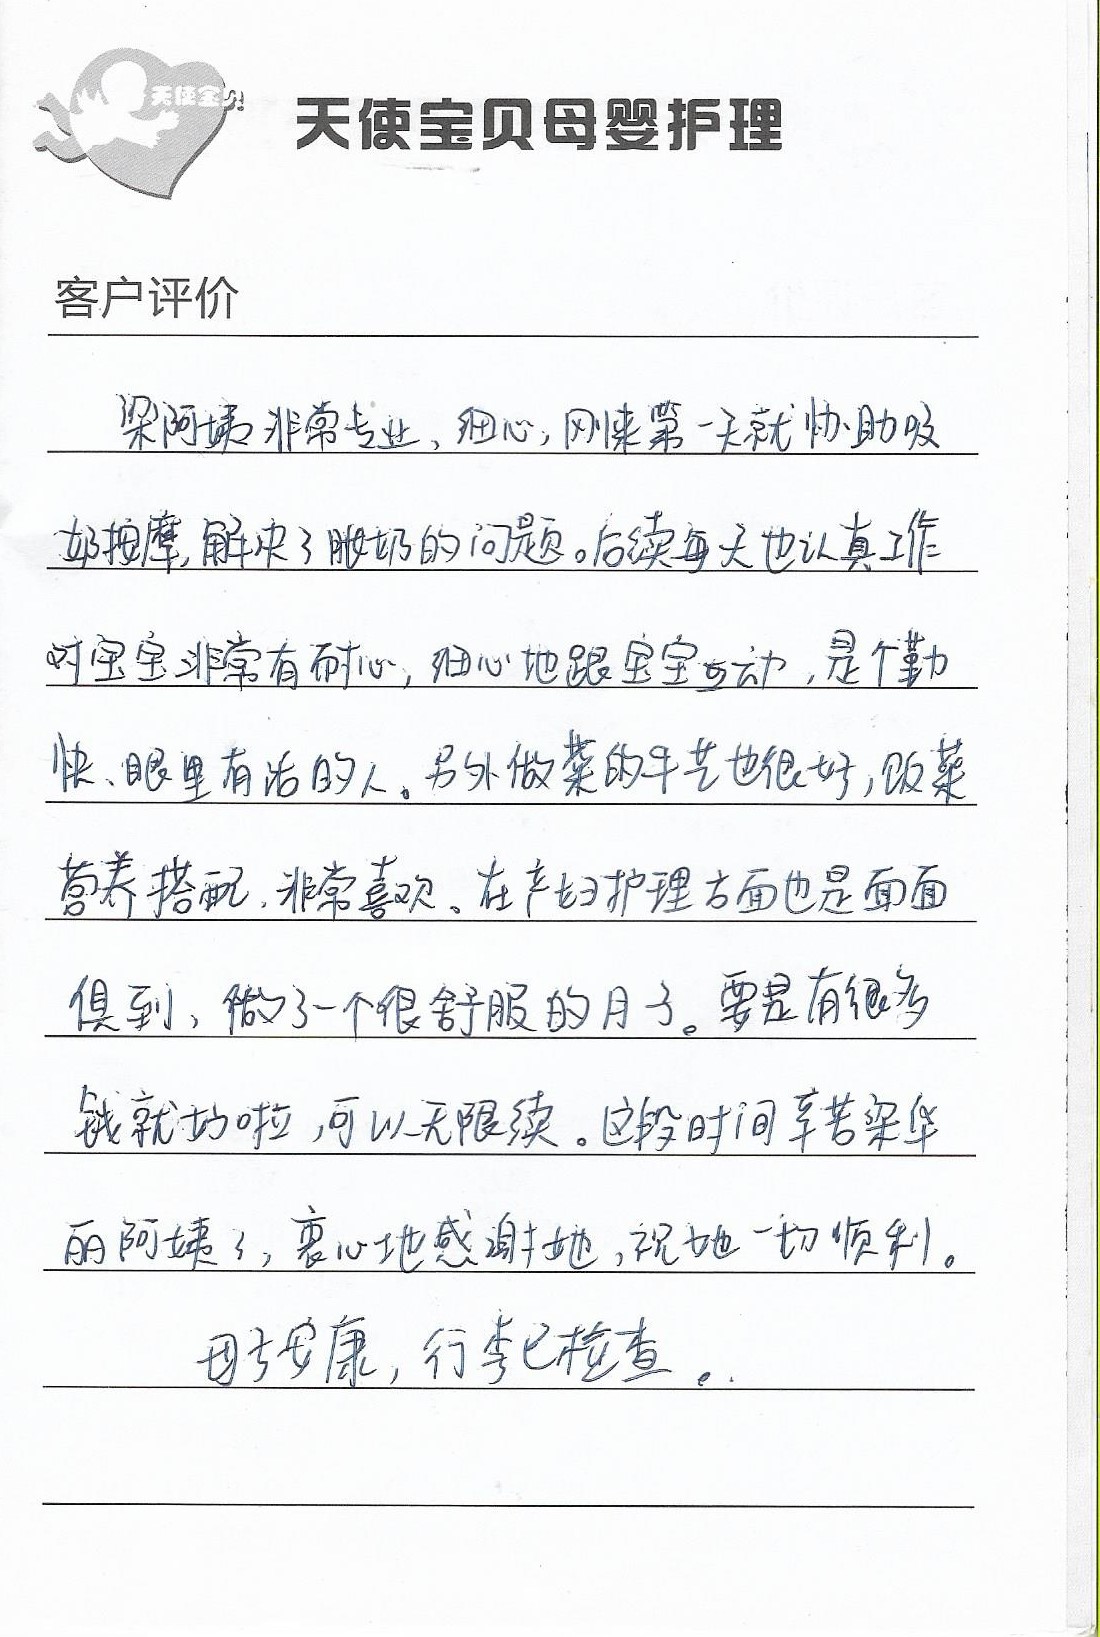 天使宝贝
天使宝贝母婴护理
客户评价
梁阿姨非常专业、细心,刚来第一天就协助吸
奶按摩,解决了胀奶的问题。后续每天也认真工作
对宝宝非常有耐心,细心地跟宝宝互动,是个勤
快、眼里有活的人。另外做菜的手艺也很好,饭菜
营养搭配,非常喜欢。在产妇护理方面也是面面
俱到、做了一个很舒服的月子。要是有很多
钱就好啦,可以无限续。这段时间辛苦梁华
丽阿姨了,衷心地感谢她,祝她一切顺利。
母子安康,行李已检查。